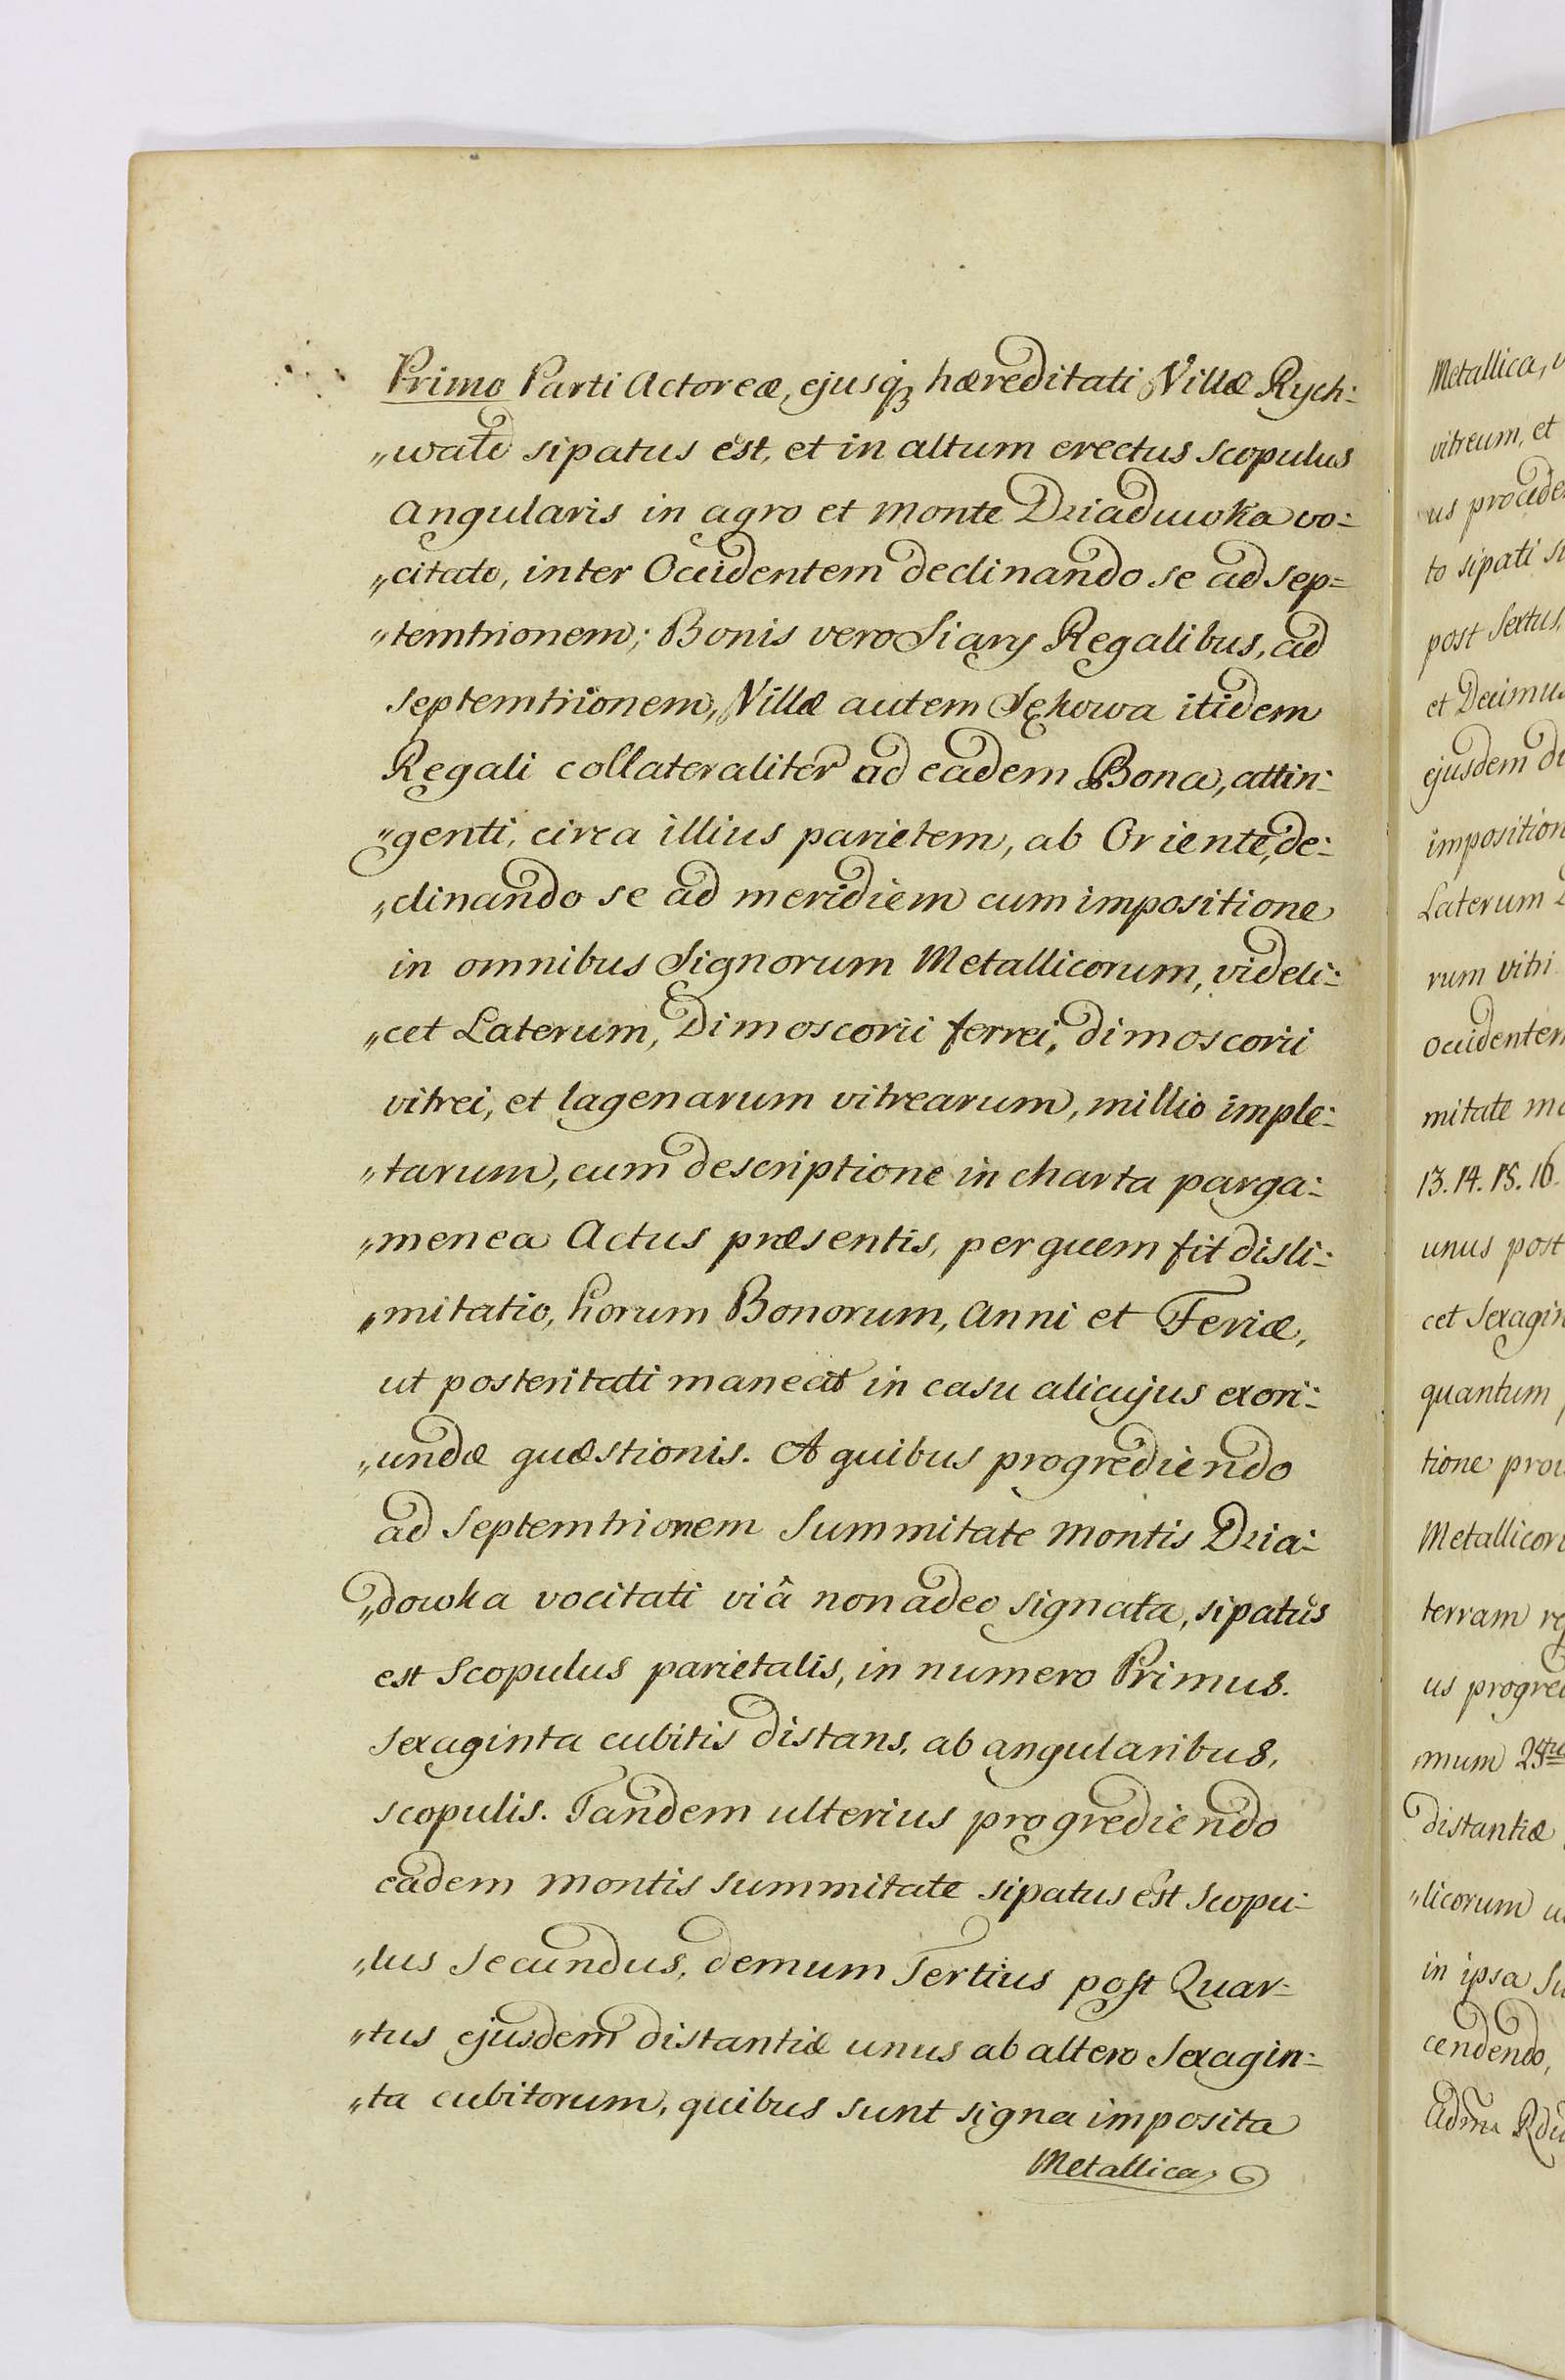 Primo Parti Actoreæ, ejusq; hæreditati Villæ Rych:
„wałd sipatus est, et in altum erectus scopulus
Angularis in agro et monte Dziaduwka vo:
„citato, inter Occidentem declinando se ad sep=
„temtrionem; Bonis vero Siary Regalibus, ad
septemtrionem, Villæ autem Sękowa itidem
Regali collateraliter ad eadem Bona, attin:
„genti, circa illius parietem, ab Oriente, de:
„clinando se ad meridiem cum impositione
in omnibus Signorum Metallicorum, videli:
„cet Laterum, Dimoscorii ferrei, dimoscorii
vitrei, et lagenarum vitrearum, millio imple:
„tarum, cum descriptione in charta parga:
„menea Actus præsentis, per quem fit disli:
„mitatio, horum Bonorum, Anni et Feriæ,
ut posteritati maneat in casu alicujus exori:
„undæ quæstionis. A quibus progrediendo
ad Septemtrionem Summitate Montis Dzia:
„dowka vocitati viâ non adeo signata, sipatus
est Scopulus parietalis, in numero Primus.
Sexaginta cubitis distans, ab angularibus,
scopulis. Tandem ulterius progrediendo
eadem montis summitate sipatus est Scopu:
„lus Secundus, demum Tertius post Quar=
„tus ejusdem distantiæ unus ab altero Sexagin:
„ta cubitorum, quibus sunt signa imposita
Metallica
Metallica,
vitreum, et
us procede
to sipati
post Sextus,
et Decimus
ejusdem di
imposition
Laterum
rum vitri
Occidentem
mitate mo
13. 14. 15. 16.
unus post
cet Sexagin
quantum
tione pro
Metallicor
terram re
us progred
mum
distantiæ
„licorum
in ipsa Su
cendendo,